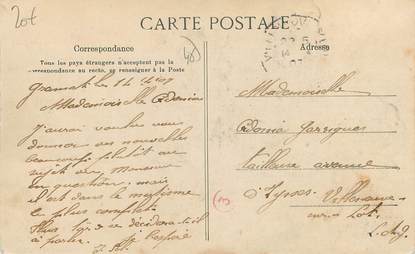 20t
CARTE POSTALE
Correspondance
Adresse
Tous les pays étrangers n'acceptent pas la
correspondance au recto, se renseigner à la Poste
Gramat le 14
Mademoiselle
J'aurai voulu vous
donner des nouvelles
beaucoup plutôt au
sujet du Monsieur
en question, mais
il est dans le mutisme
le plus complet.
se décidera-t-il
à parler.
Mademoiselle
Garrigues
tailleuse avenue
d'Eysses Villeneuve
sur-Lot.
L.-&-G.